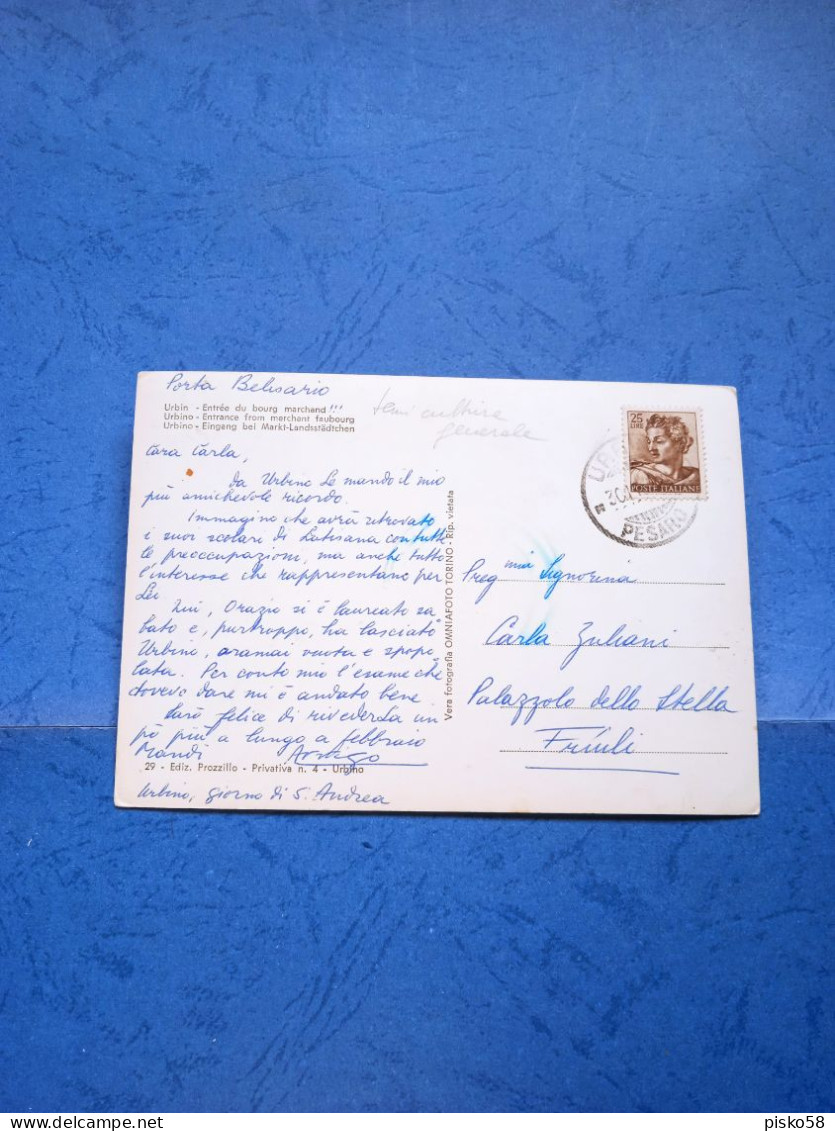 Porta Belisario
Urbin - Entrée du bourg marchend !!!
Urbino - Entrance from merchant faubourg
Urbino - Eingang bei Markt-Landsstädtchen
generale
Cara Carla,
da Urbino Le mando il mio
più amichevole ricordo.
Immagino che avrà ritrovato
i suoi scolari di Latisana con tutte
le preoccupazioni, ma anche tutto
l'interesse che rappresentano per
Lei
Orazio si è laureato sa
bato e, purtroppo, ha lasciato
Urbino, oramai vuota e spopo
lata. Per conto mio l'esame che
dovevo dare mi è andato bene.
Sarò felice di rivederLa un
pò più a lungo a febbraio
Mandi Arrigo
29 - Ediz. Prozzillo - Privativa n. 4 - Urbino
Urbino, giorno di S. Andrea
Vera fotografia OMNIAFOTO TORINO - Rip. vietata
25
LIRE
POSTE ITALIANE
PESARO
Preg mia Signorina
Carla Zuliani
Palazzolo dello Stella
Friuli
delcampe.net
pisko58